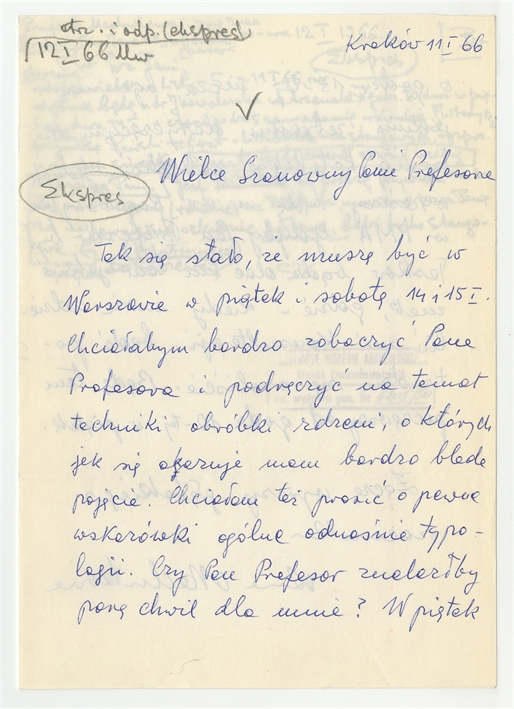 otrz. i odp. (ekspres)
12 I 66 
Kraków 11 I 66
Ekspres
Wielce Szanowny Panie Profesorze
Tak się stało, że muszę być w
Warszawie w piątek i sobotę 14 i 15 I.
Chciałabym bardzo zobaczyć Pana
Profesora i podręczyć na temat
techniki obróbki rdzeni, o których
jak się okazuje mam bardzo blade
pojęcie. Chciałam też prosić o pewne
wskazówki ogólne odnośnie typo-
logii. Czy Pan Profesor znalazłby
parę chwil dla mnie? W piątek